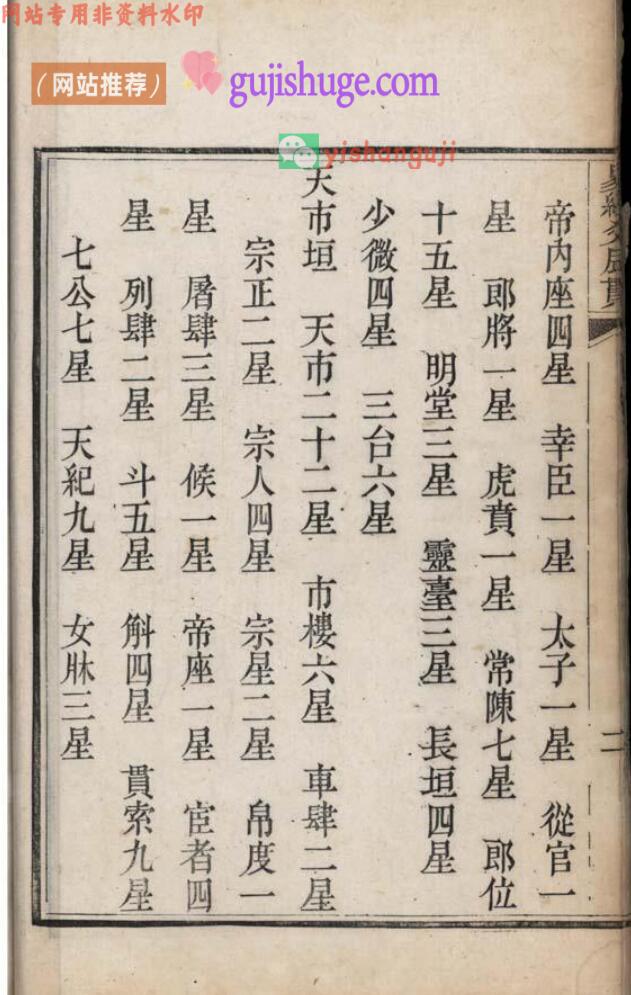 网站专用非资料水印
（网站推荐）
gujishuge.com
yishanguji
帝內座四星　幸臣一星　太子一星　從官一
星　郎將一星　虎賁一星　常陳七星　郎位
十五星　明堂三星　靈臺三星　長垣四星
少微四星　三台六星
天市垣　天市二十二星　市樓六星　車肆二星
宗正二星　宗人四星　宗星二星　帛度一
星　屠肆三星　候一星　帝座一星　宦者四
星　列肆二星　斗五星　斛四星　貫索九星
七公七星　天紀九星　女牀三星
二